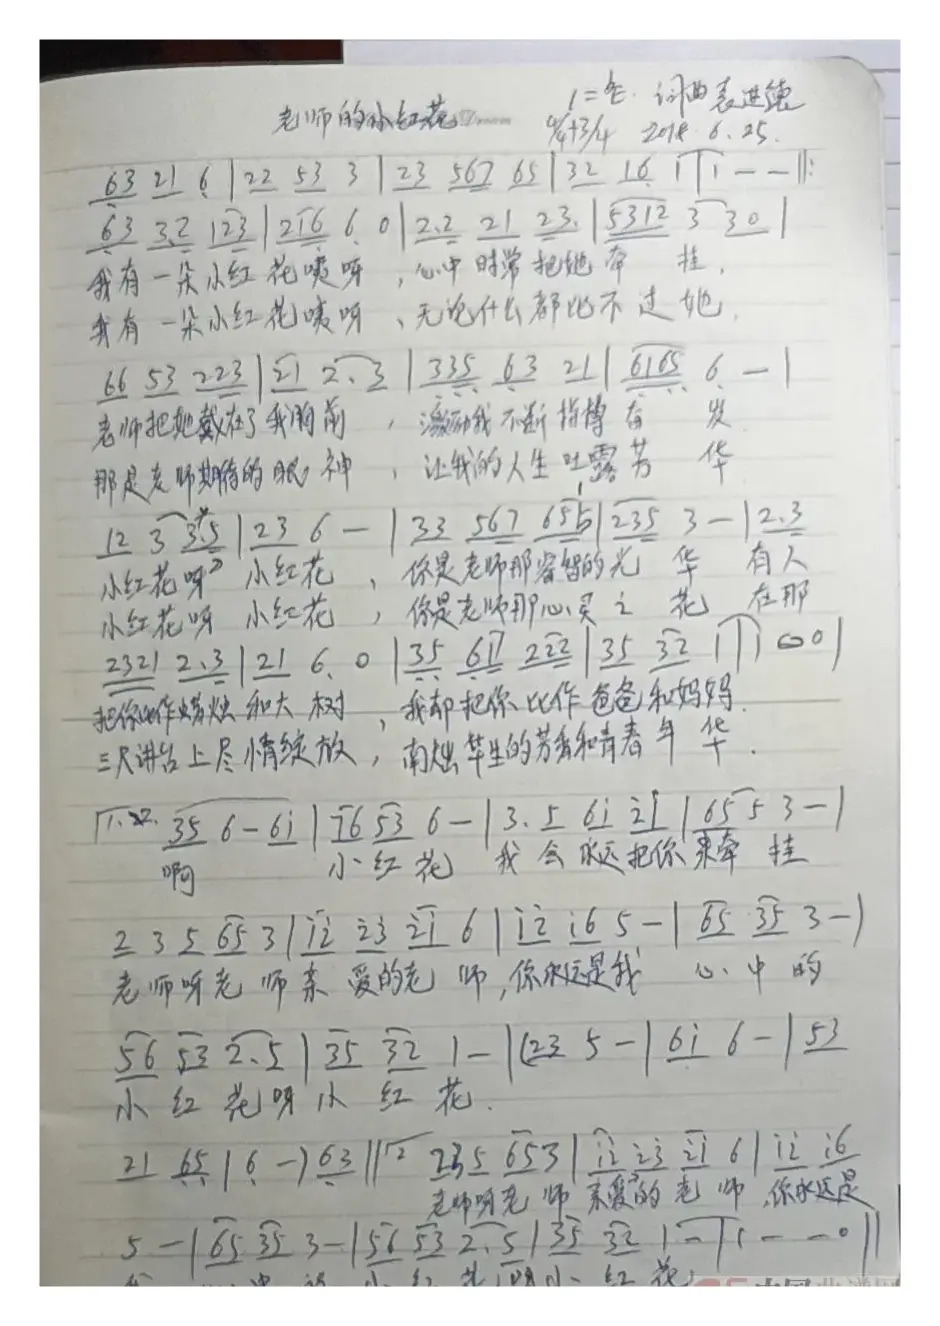 老师的小红花 1= 词曲袁进德
4/4+3/4 2018.6.25.
63 21 6 | 22 53 3 | 23 567 65 | 32 16 1 | 1 - - ‖:
63 3.2 123 | 216 6 0 | 2.2 21 23. | 5312 3 30 |
我有一朵小红花咦呀,心中时常把她牵挂,
我有一朵小红花咦呀、无论什么都比不过她.
66 53 223 | 21 2.3 | 335 63 21 | 6165 6 - |
老师把她戴在了我胸前,激励我不断拼搏奋发
那是老师期待的眼神,让我的人生吐露芳华
12 3 3.5 | 23 6 - | 33 567 65 | 235 3 - | 2.3
小红花呀 小红花,你是老师那睿智的光华 有人
小红花呀 小红花,你是老师那心灵之花 在那
2321 2.3 | 21 6 0 | 35 61 222 | 35 32 1 | 1 00 |
把你比作蜡烛和大树,我却把你比作爸爸和妈妈.
三尺讲台上尽情绽放,毕生的芳香和青春年华.
1. 35 6-6i | i6 53 6- | 3. 5 6i 2i | 65 5 3- |
啊 小红花 我会永远把你来牵挂
2 3 5 65 3 | i2 i3 2i 6 | i2 i6 5- | 65 35 3- |
老师呀老师亲爱的老师,你永远是我心中的
56 53 2.5 | 35 32 1- | (23 5- | 6i 6- | 53
小红花呀小红花.
21 65 | 6 -) 63 ‖ 2 235 653 | i2 i3 2i 6 | i2 i6
老师呀老师亲爱的老师,你永远是
5- | 65 35 3- | 56 53 2.5 | 35 32 1- | 1 - - 0 ‖
小红花呀小红花